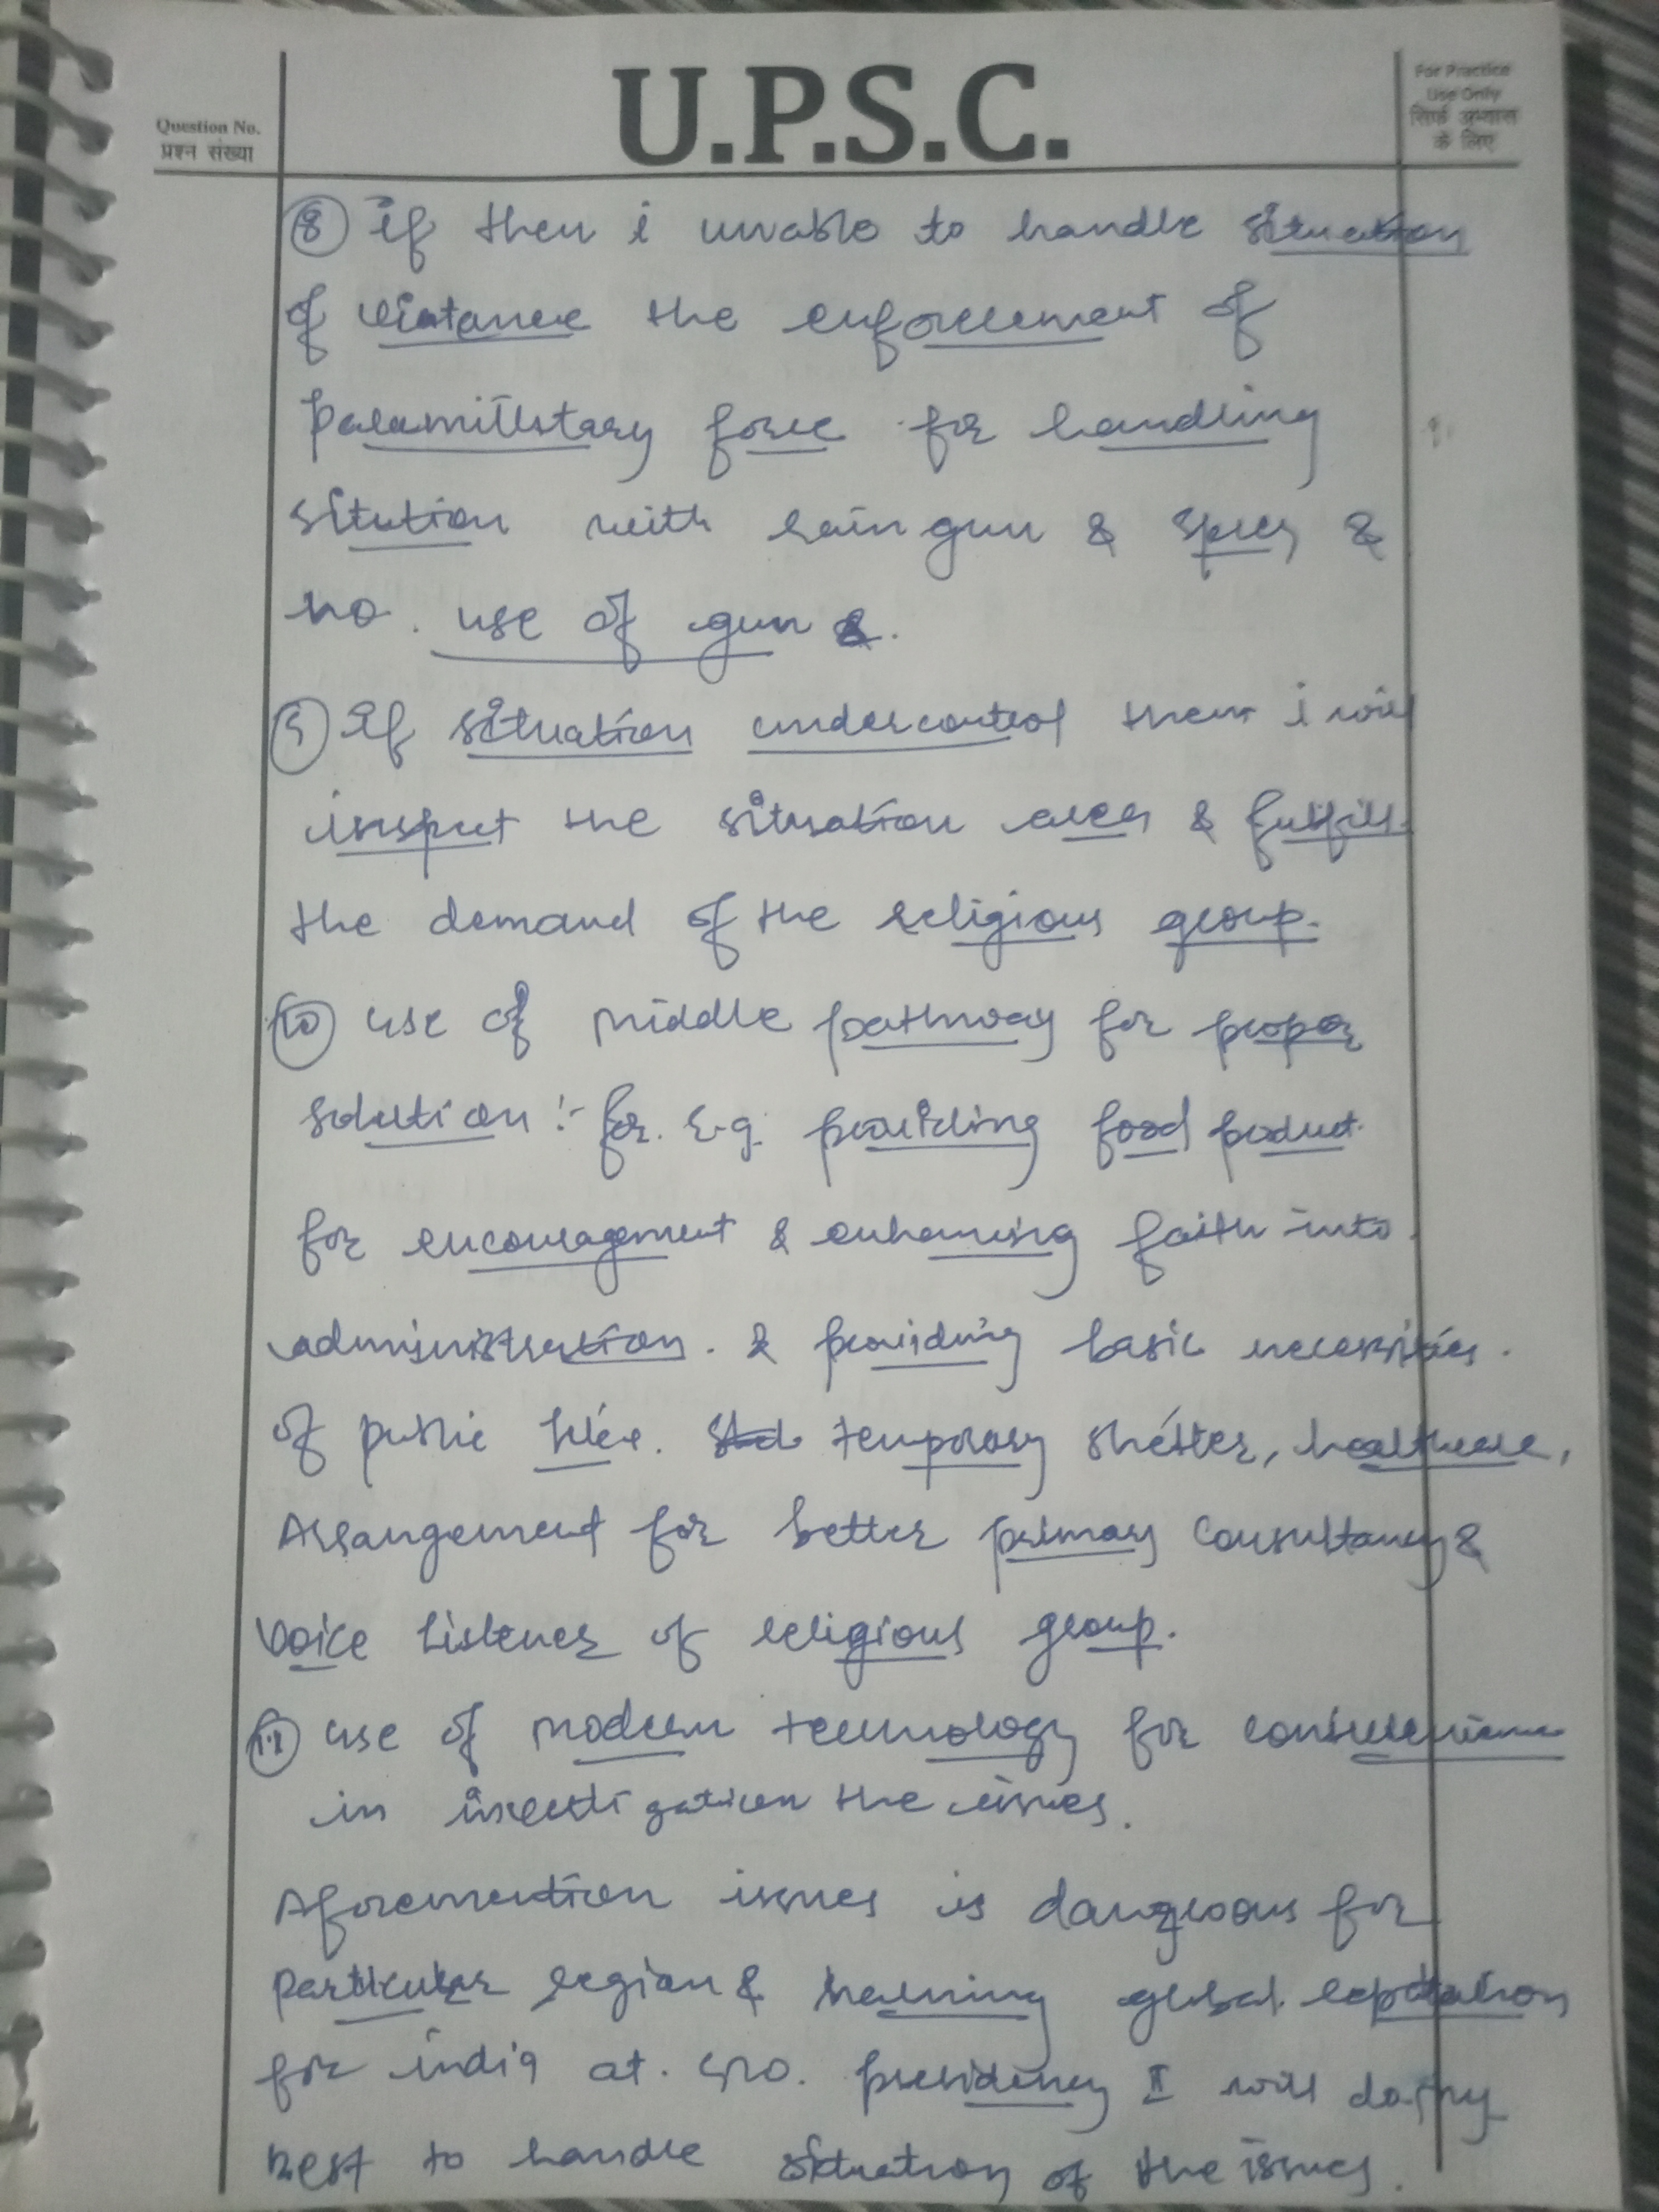 U.P.S.C.
Question No.
प्रश्न संख्या
For Practice
Use Only
सिर्फ अभ्यास
के लिए
⑧ if then i unable to handle situation
of the enforcement of
paramilitary force for handling
sitution with gun &
no. use of gun &.
if situation undercontrol then i will
inspect the situation area & fulfill
the demand of the religious group.
⑩ use of middle pathway for proper
solution :- for. E.g. providing food product
for encouragement & enhancing faith into
administration. & providing basic necessities.
of public like. temporary shelter, healthcare,
Arrangement for better primary consultancy &
Voice listener of religious group.
⑪ use of modern technology for
in the issues.
Aforemention issues is dangerous for
particular region & harming global reputation
for india at. G20. presidency I will do my
best to handle situation of the issues.